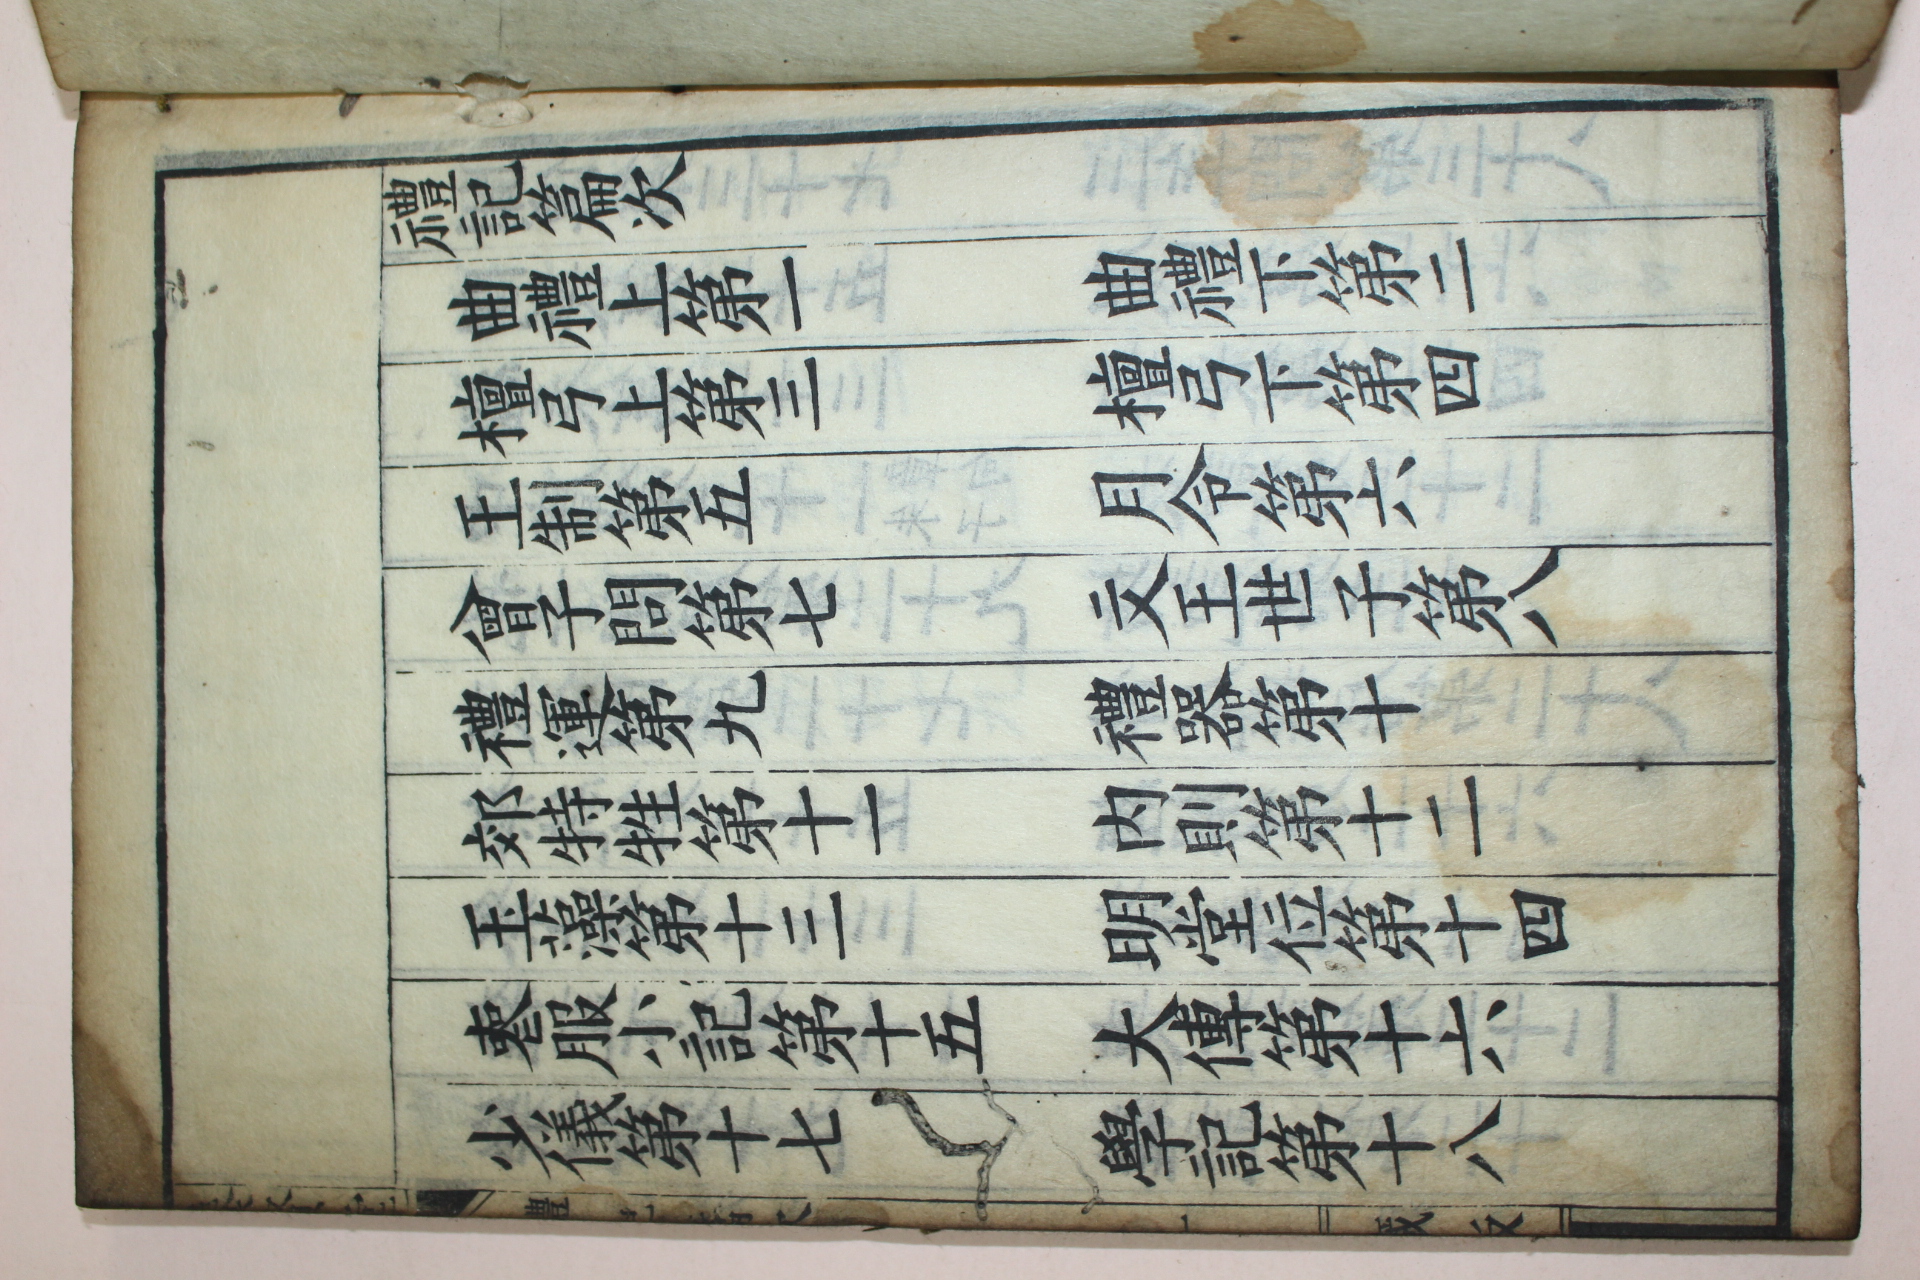 禮記篇次
曲禮上第一
曲禮下第二
檀弓上第三
檀弓下第四
王制第五
月令第六
曾子問第七
文王世子第八
禮運第九
禮器第十
郊特牲第十一
內則第十二
玉藻第十三
明堂位第十四
喪服小記第十五
大傳第十六
少儀第十七
學記第十八